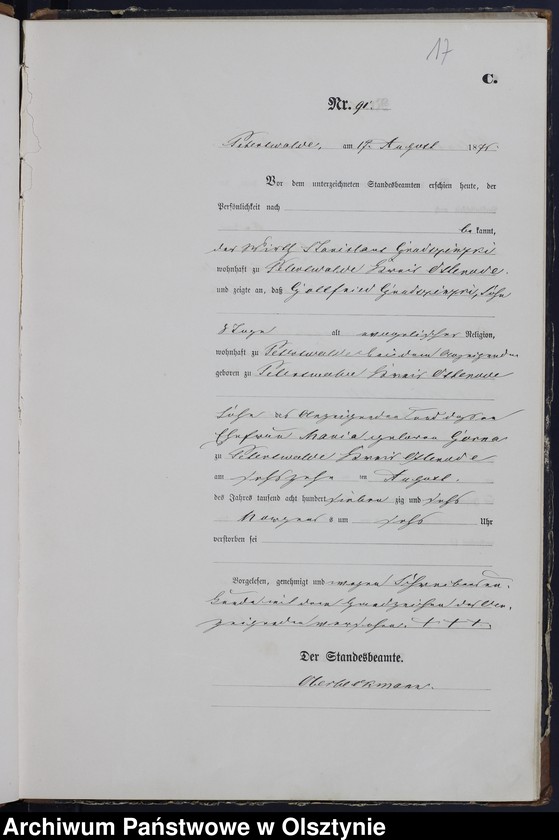 17
C.
Nr. 91.
Peterswalde, am 19. August 1876.
Vor dem unterzeichneten Standesbeamten erschien heute, der
Persönlichkeit nach
be kannt,
der Wirth Stanislaus
wohnhaft zu Peterswalde Kreis Osterode.
und zeigte an, daß Gottfried Sohn
8 Tage alt evangelischer Religion,
wohnhaft zu Peterswalde bei dem Anzeigenden
geboren zu Peterswalde Kreis Osterode
Sohn des Anzeigenden und dessen
Ehefrau Maria geboren
zu Peterswalde Kreis Osterode
am sechszehn ten August
des Jahres tausend acht hundert sieben zig und sechs
Morgens um sechs Uhr
verstorben sei
Vorgelesen, genehmigt und wegen Schreibensun-
kunde mit dem Handzeichen des An-
zeigenden versehen. + + +
Der Standesbeamte.